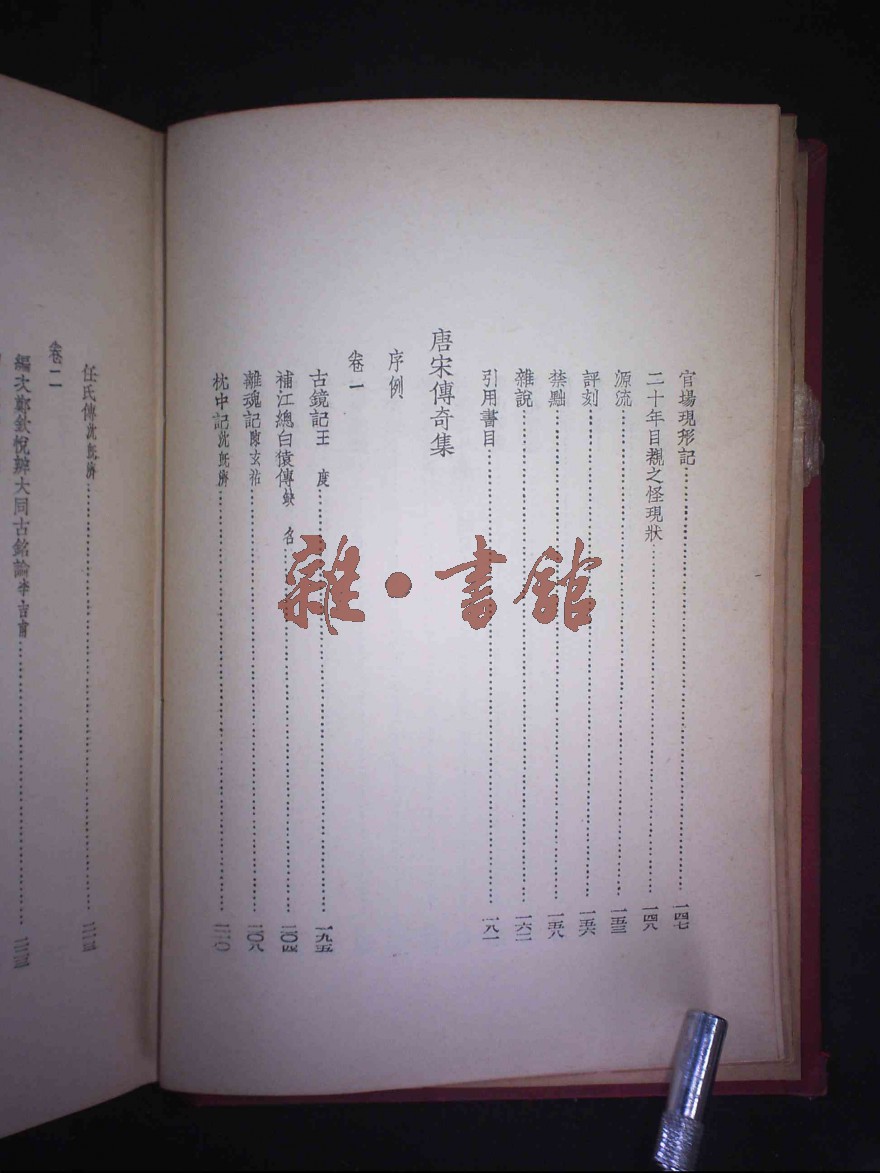 官場現形記……一四七
二十年目覩之怪現狀……一四八
源流……一五三
評刻……一五六
禁黜……一五八
雜說……一六二
引用書目……一八一
唐宋傳奇集
序例
卷一
古鏡記王　度……一九五
補江總白猿傳缺　名……二〇四
離魂記陳玄祐……二〇八
枕中記沈旣濟……二一〇
任氏傳沈旣濟……二一三
卷二
編次鄭欽悅辨大同古銘論李吉甫……二二三
雜·書館